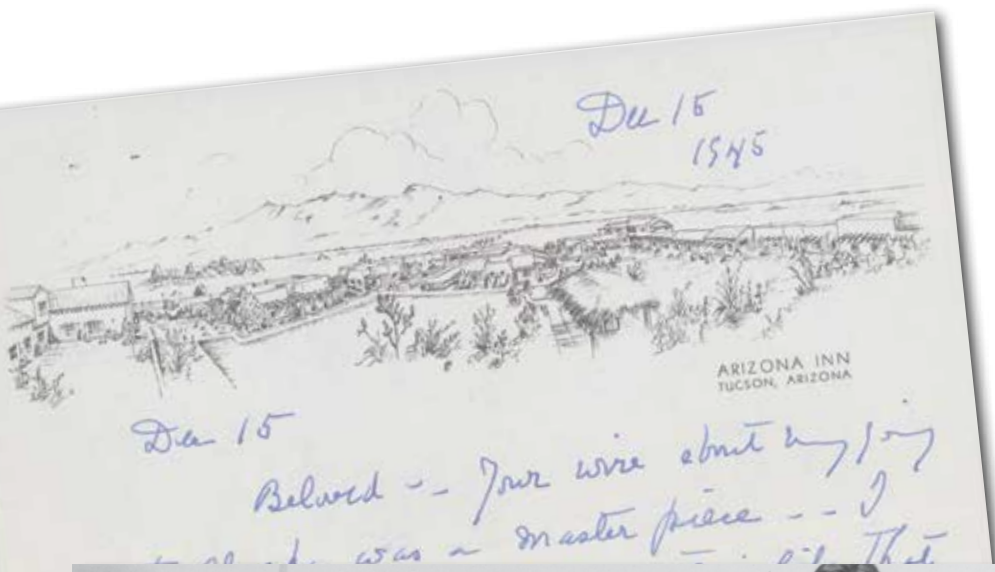 Dec 15
1945
ARIZONA INN
TUCSON, ARIZONA
Dec 15
Beloved -- Your wire about my going
was a master piece -- I
like That